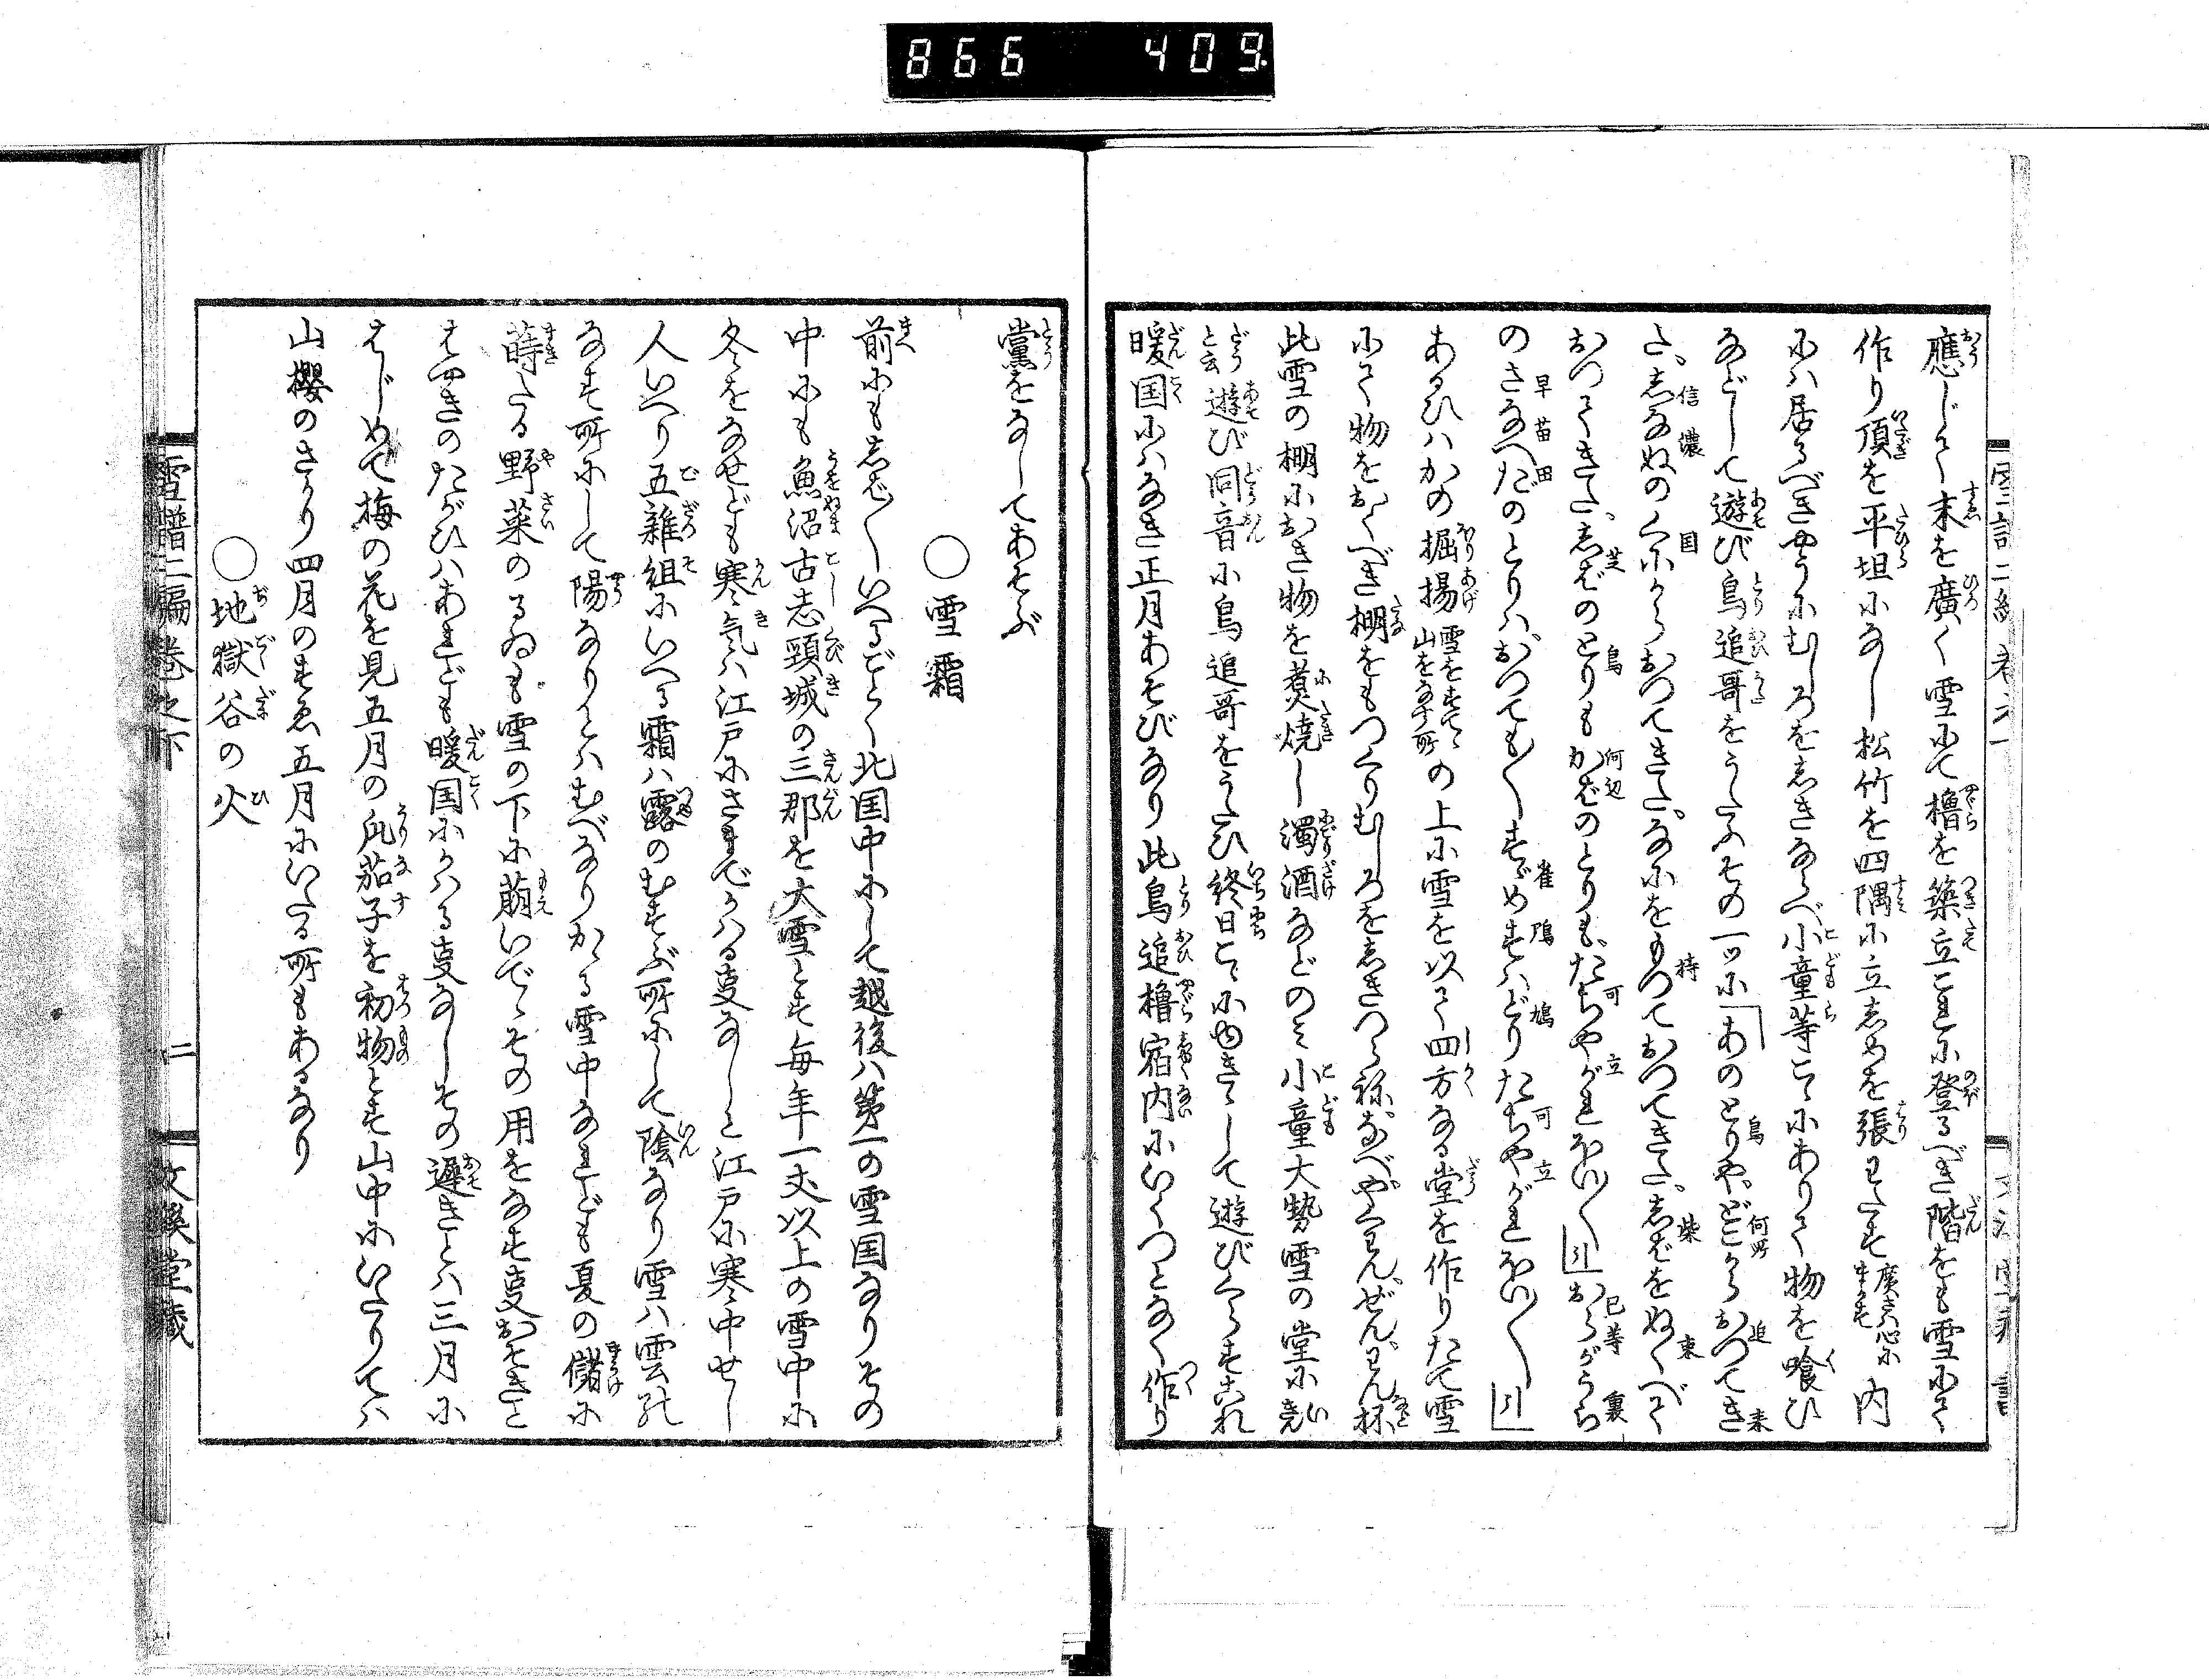 866 409
應じて末を廣く雪にて櫓を築立これに登るべき階をも雪にて
作り頂を平坦になし松竹を四隅に立しめを張わたす廣さは心にまかす内
には居るべきやうにむしろをしきならべ小童等こゝにありて物を喰ひ
などして遊び鳥追哥をうたふその一ツに「あのとりや、どこからおつてき
た、しなぬのくにからおつてきた。なにをもつておつてきた、しばをぬくべて
おつてきた、しばのとりもかばのとりも、たちやがれほい〳〵引」おらがうら
のさなへだのとりハ、おつても〳〵すゞめすハどりたちやがれほい〳〵引」
あるひハかの掘揚雪をすてゝ山をなす所の上に雪を以て四方なる堂を作りたて雪
にて物をおくべき棚をもつくりむしろをしきつらねなべやくわん、ぜん、わん杯
此雪の棚におき物を煮焼し濁酒などのみ小童大勢雪の堂にゐ
と云遊び同音に鳥追哥をうたひ終日こゝにゆきゝして遊びくらすこれ
暖国にハなき正月あそびなり此鳥追櫓宿内にいくつとなく作り
黨をなしてあそぶ
○雪霜
前にもしば〳〵いへるごとく北国中にして越後ハ第一の雪国なりその
中にも魚沼古志頸城の三郡を大雪とす毎年一丈以上の雪中に
冬をなせども寒気ハ江戸にさまでかハる事なしと江戸に寒中せし
人いへり五雑組にいへる霜ハ露のむすぶ所にして陰なり雪ハ雲の
なす所にして陽なりとハむべなりかゝる雪中なれども夏の儲に
蒔たる野菜のるゐも雪の下に萠いでゝその用をなす事おそきと
はやきのたがひハあれども暖国にかハる事なしその遅きとハ三月に
はじめて梅の花を見五月の瓜茄子を初物とす山中にいたりてハ
山櫻のさかり四月のすゑ五月にいたる所もあるなり
○地獄谷の火
雪譜二編巻之下 二 文溪堂藏